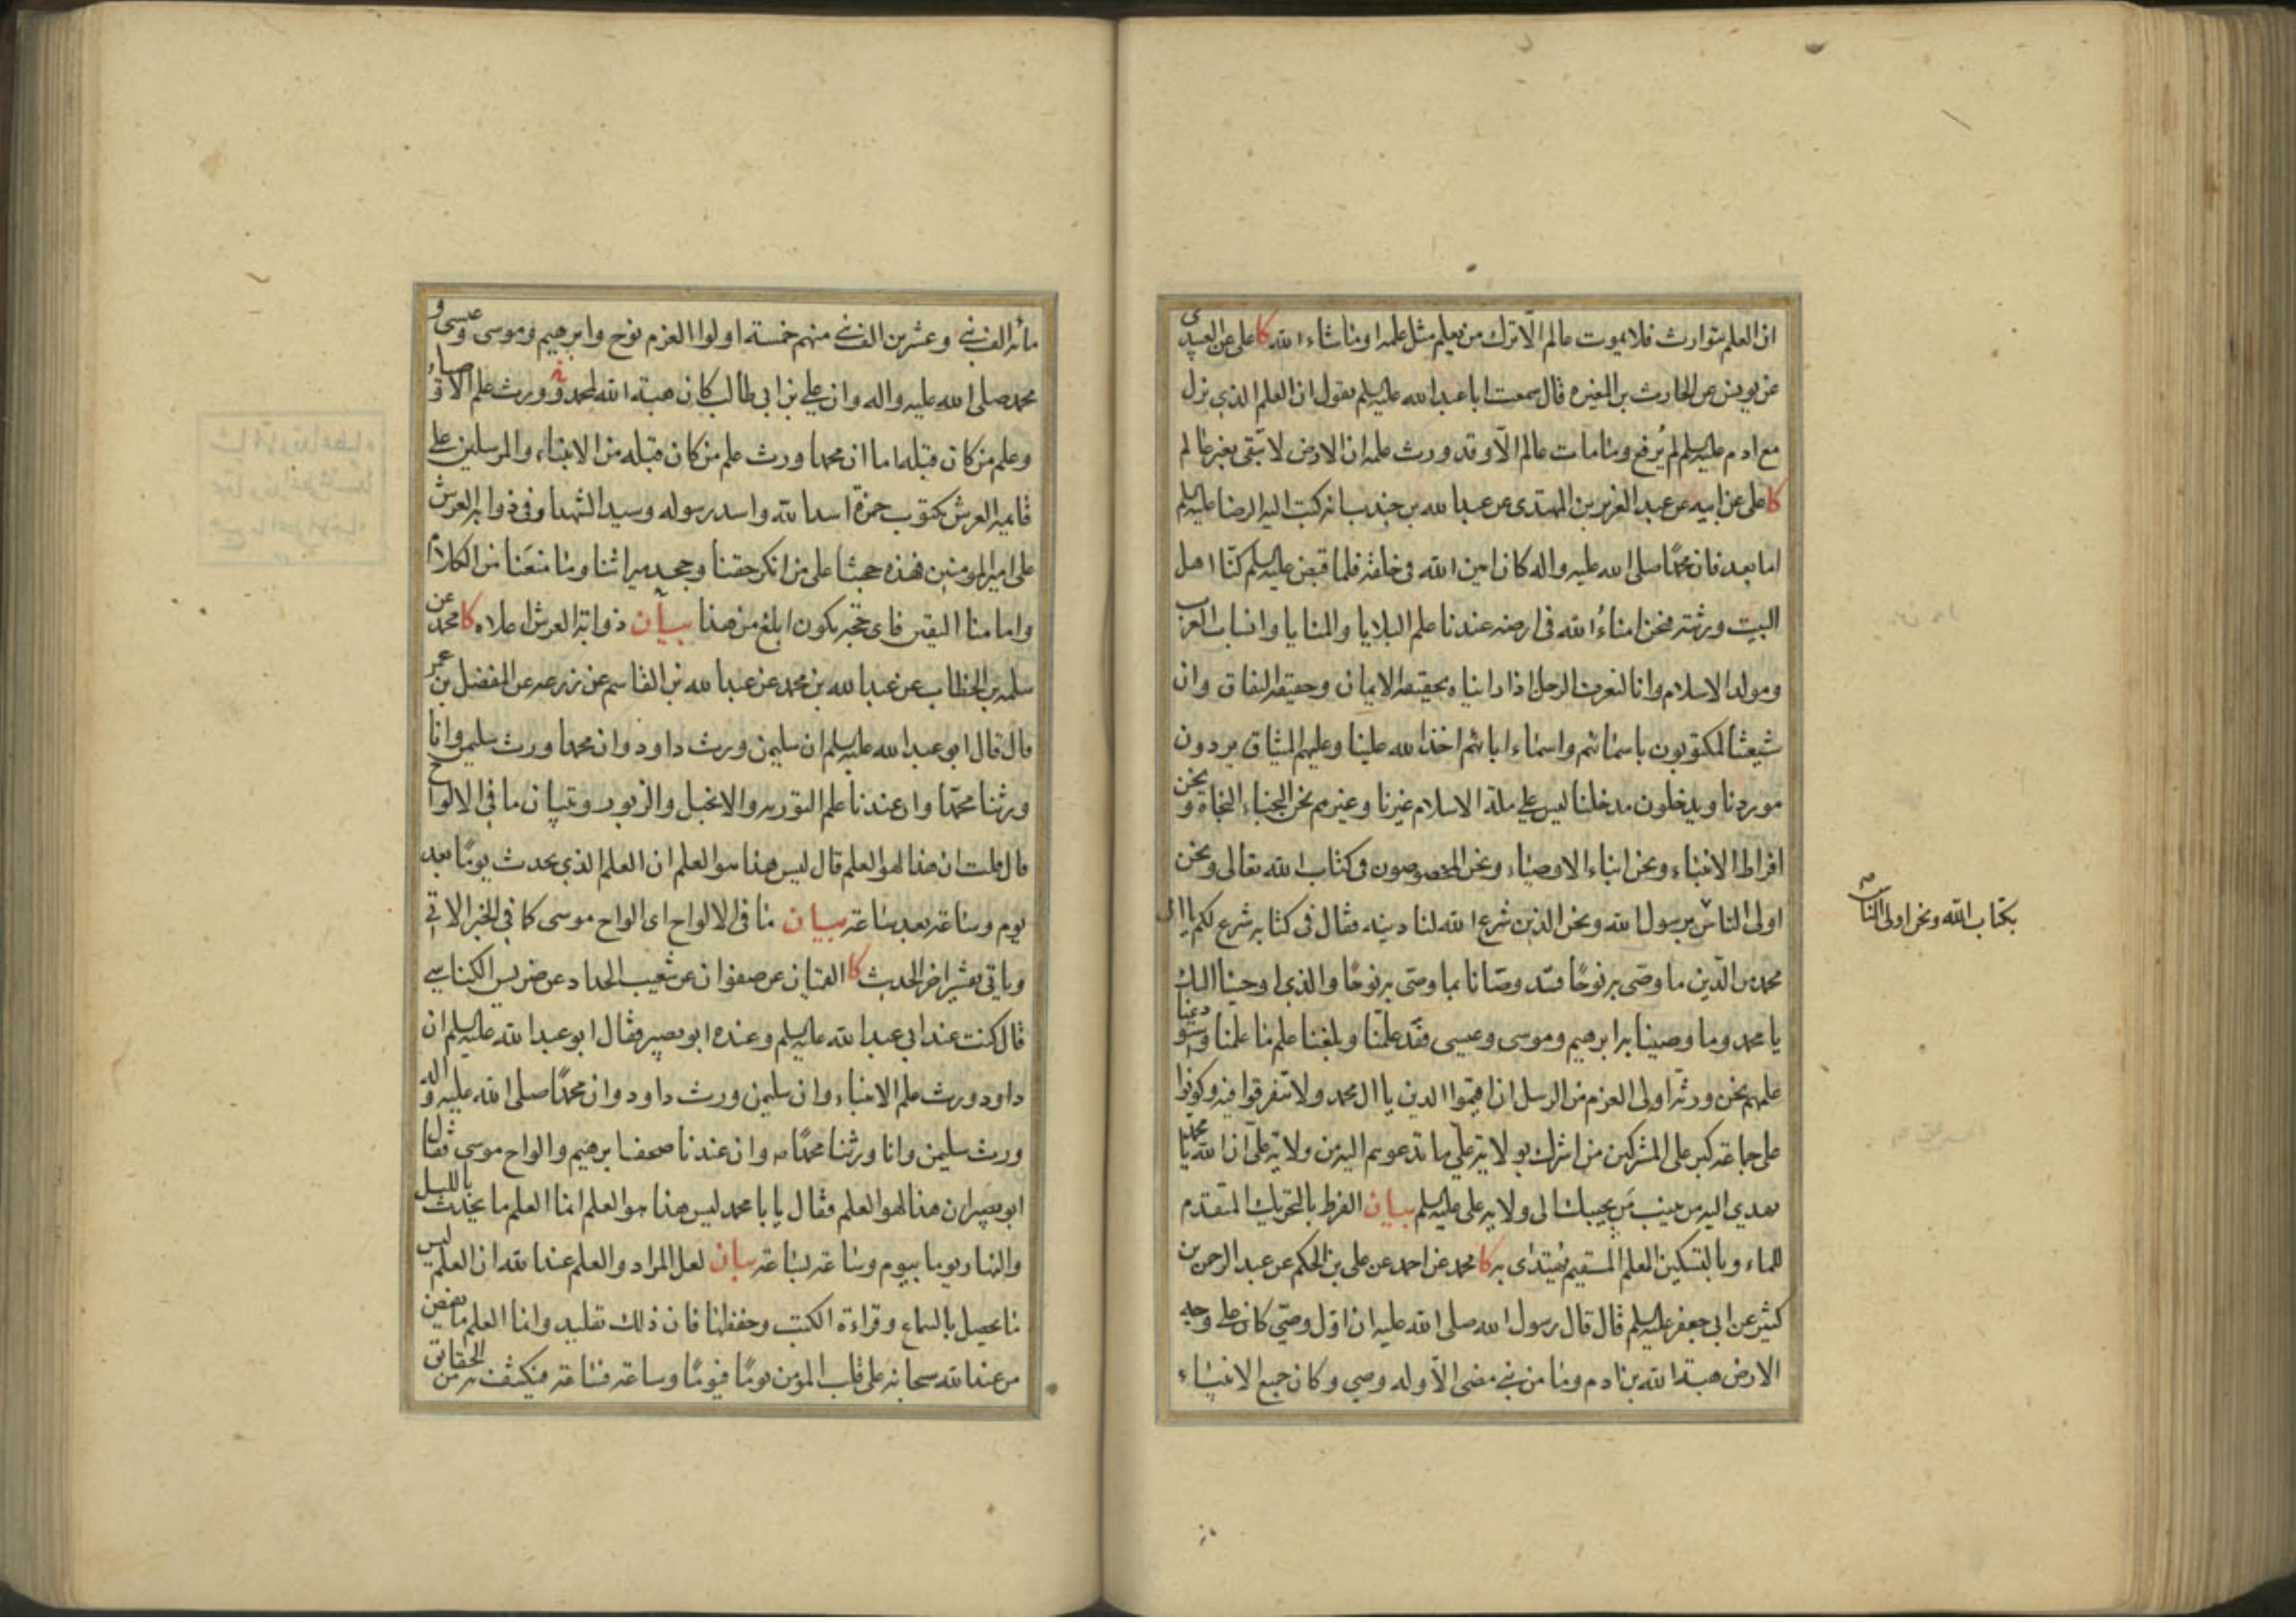 ان العلم يتوارث فلا يموت عالم الّا ترك من يعلم مثل علمه او ما شاء الله كا على عن العبيدى
عن يونس عن الحارث بن المغيره قال سمعت ابا عبد الله عليه السلم يقول ان العلم الذى نزل
مع ادم عليه السلم لم يُرفع وما مات عالم الّا وقد ورث علمه ان الارض لا تبقى بغير عالم
كا على عن ابيه عن عبد العزيز بن المهتدى عن عبد الله بن جندب انه كتب اليه الرضا عليه السلم
اما بعد فان محمدًا صلى الله عليه واله كان امين الله فى خلقه فلما قبض عليه السلم كنّا اهل
البيت ورثته فنحن امناءُ الله فى ارضه عندنا علم البلايا والمنايا وانساب العرب
ومولد الاسلام وانا لنعرف الرجل اذا رايناه بحقيقة الايمان وحقيقة النفاق وان
شيعتنا لمكتوبون باسمائهم واسماء ابائهم اخذ الله علينا وعليهم الميثاق يردون
موردنا ويدخلون مدخلنا ليس على ملة الاسلام غيرنا وغيرهم نحن النجباء النجاة ونحن
افراط الانبياء ونحن ابناء الاوصياء ونحن المخصوصون فى كتاب الله تعالى ونحن
اولى الناس برسول الله ونحن الذين شرع الله لنا دينه فقال فى كتابه شرع لكم يا ال
محمد من الدّين ما وصّى به نوحًا قد وصّانا بما وصّى به نوحًا والذى اوحينا اليك
يا محمد وما وصينا به ابرهيم وموسى وعيسى فقَد علّمنا وبلغنا علم ما علمنا واستودعنا
علمهم نحن ورثة اولى العزم من الرسل ان اقيموا الدين يا ال محمد ولا تتفرقوا فيه وكونوا
على جماعة كبر على المشركين من اشرك بولاية علىّ ما تدعوهم اليه من ولاية علىّ ان الله يا محمد
يهدى اليه من ينيب مَن يجيبك الى ولاية على عليه السلم بيان الفرط بالتحريك المتقدم
للماء وبالتسكين العلم المستقيم يهتدى به كا محمد عن احمد عن على بن الحكم عن عبد الرحمن بن
كثير عن ابى جعفر عليه السلم قال قال رسول الله صلى الله عليه ان اوّل وصىّ كان على وجه
الارض هبة الله بن ادم وما من نبى مضى الّا وله وصى وكان جميع الانبياء
بكتاب الله ونحن اولى الناس
مائة الف نبى وعشرين الف نبى منهم خمسة اولوا العزم نوح وابرهيم وموسى وعيسى و
محمد صلى الله عليه واله وان على بن ابى طالب كان هبة الله لمحمد وورث علم الاوصياء
وعلم من كان قبله اما ان محمدا ورث علم من كان قبله من الانبياء والمرسلين على
قايمة العرش مكتوب حمزة اسد الله واسد رسوله وسيد الشهدا وفى ذوابة العرش
على امير المومنين فهذه حجتنا على من انكر حقنا وجحد ميراثنا وما منعَنا من الكلام
وامامنا اليقين فاى حجة يكون ابلغ من هذا بيان ذوابة العرش اعلاه كا محمد عن
سلمه بن الخطاب عن عبد الله بن محمد عن عبد الله بن القاسم عن زرعه عن المفضل بن عمر
قال قال ابو عبد الله عليه السلم ان سليمن ورث داود وان محمدا ورث سليمن وانا
ورثنا محمدًا وان عندنا علم التورية والانجيل والزبور وتبيان ما فى الالواح
قال قلت ان هذا لهو العلم قال ليس هذا هو العلم ان العلم الذى يحدث يومًا بعد
يوم وساعة بعد ساعة بيان ما فى الالواح اى الواح موسى كما فى الخبر الاتى
وياتى تفسير اخر الحديث كا القميان عن صفوان عن شعيب الحداد عن ضريس الكناسى
قال كنت عند ابى عبد الله عليه السلم وعنده ابو بصير فقال ابو عبد الله عليه السلم ان
داود ورث علم الانبياء وان سليمن ورث داود وان محمدًا صلى الله عليه واله
ورث سليمن وانا ورثنا محمدًا ص وان عندنا صحف ابرهيم والواح موسى فقال
ابو بصير ان هذا لهو العلم فقال يا با محمد ليس هذا هو العلم انما العلم ما يحدث بالليل
والنهار يوما بيوم وساعة بساعة بيان لعل المراد والعلم عند الله ان العلم ليس
ما يحصل بالسماع وقراءة الكتب وحفظها فان ذلك تقليد وانما العلم ما يفيض
من عند الله سبحانه على قلب المؤمن يومًا فيومًا وساعة فساعة فينكشف به من الحقايق